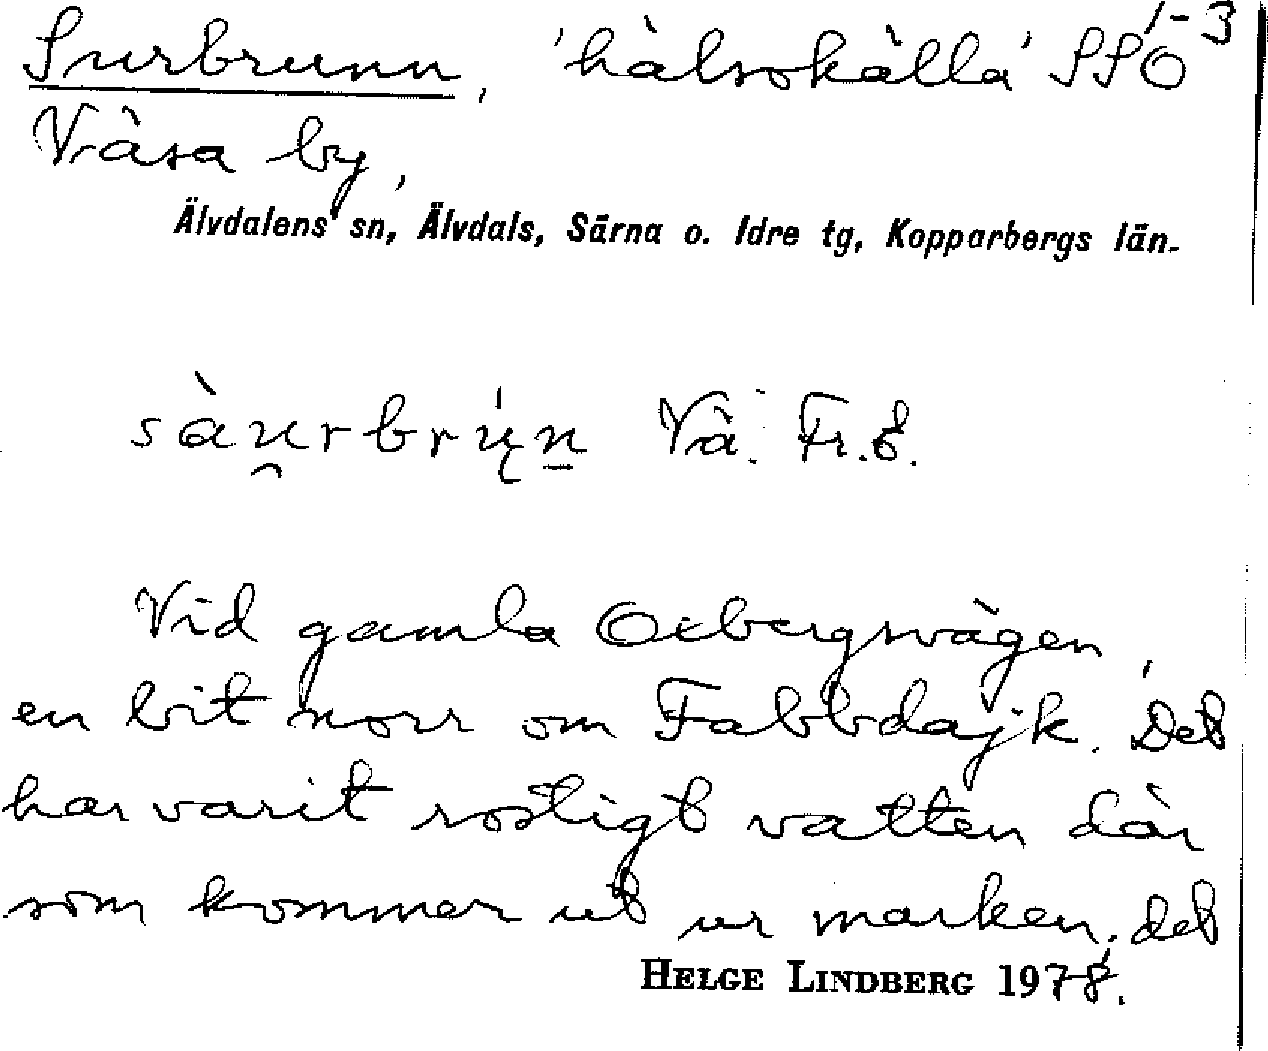 Surbrunn, 'hälsokälla' SSO 1-3
Väsa by,
Älvdalens sn, Älvdals, Särna o. Idre tg, Kopparbergs län.
Vä. Fr.E.
Vid gamla Oxbergsvägen,
en bit norr om Fabbdajk. Det
har varit rostigt vatten där
som kommer ut ur marken. det
HELGE LINDBERG 1978.